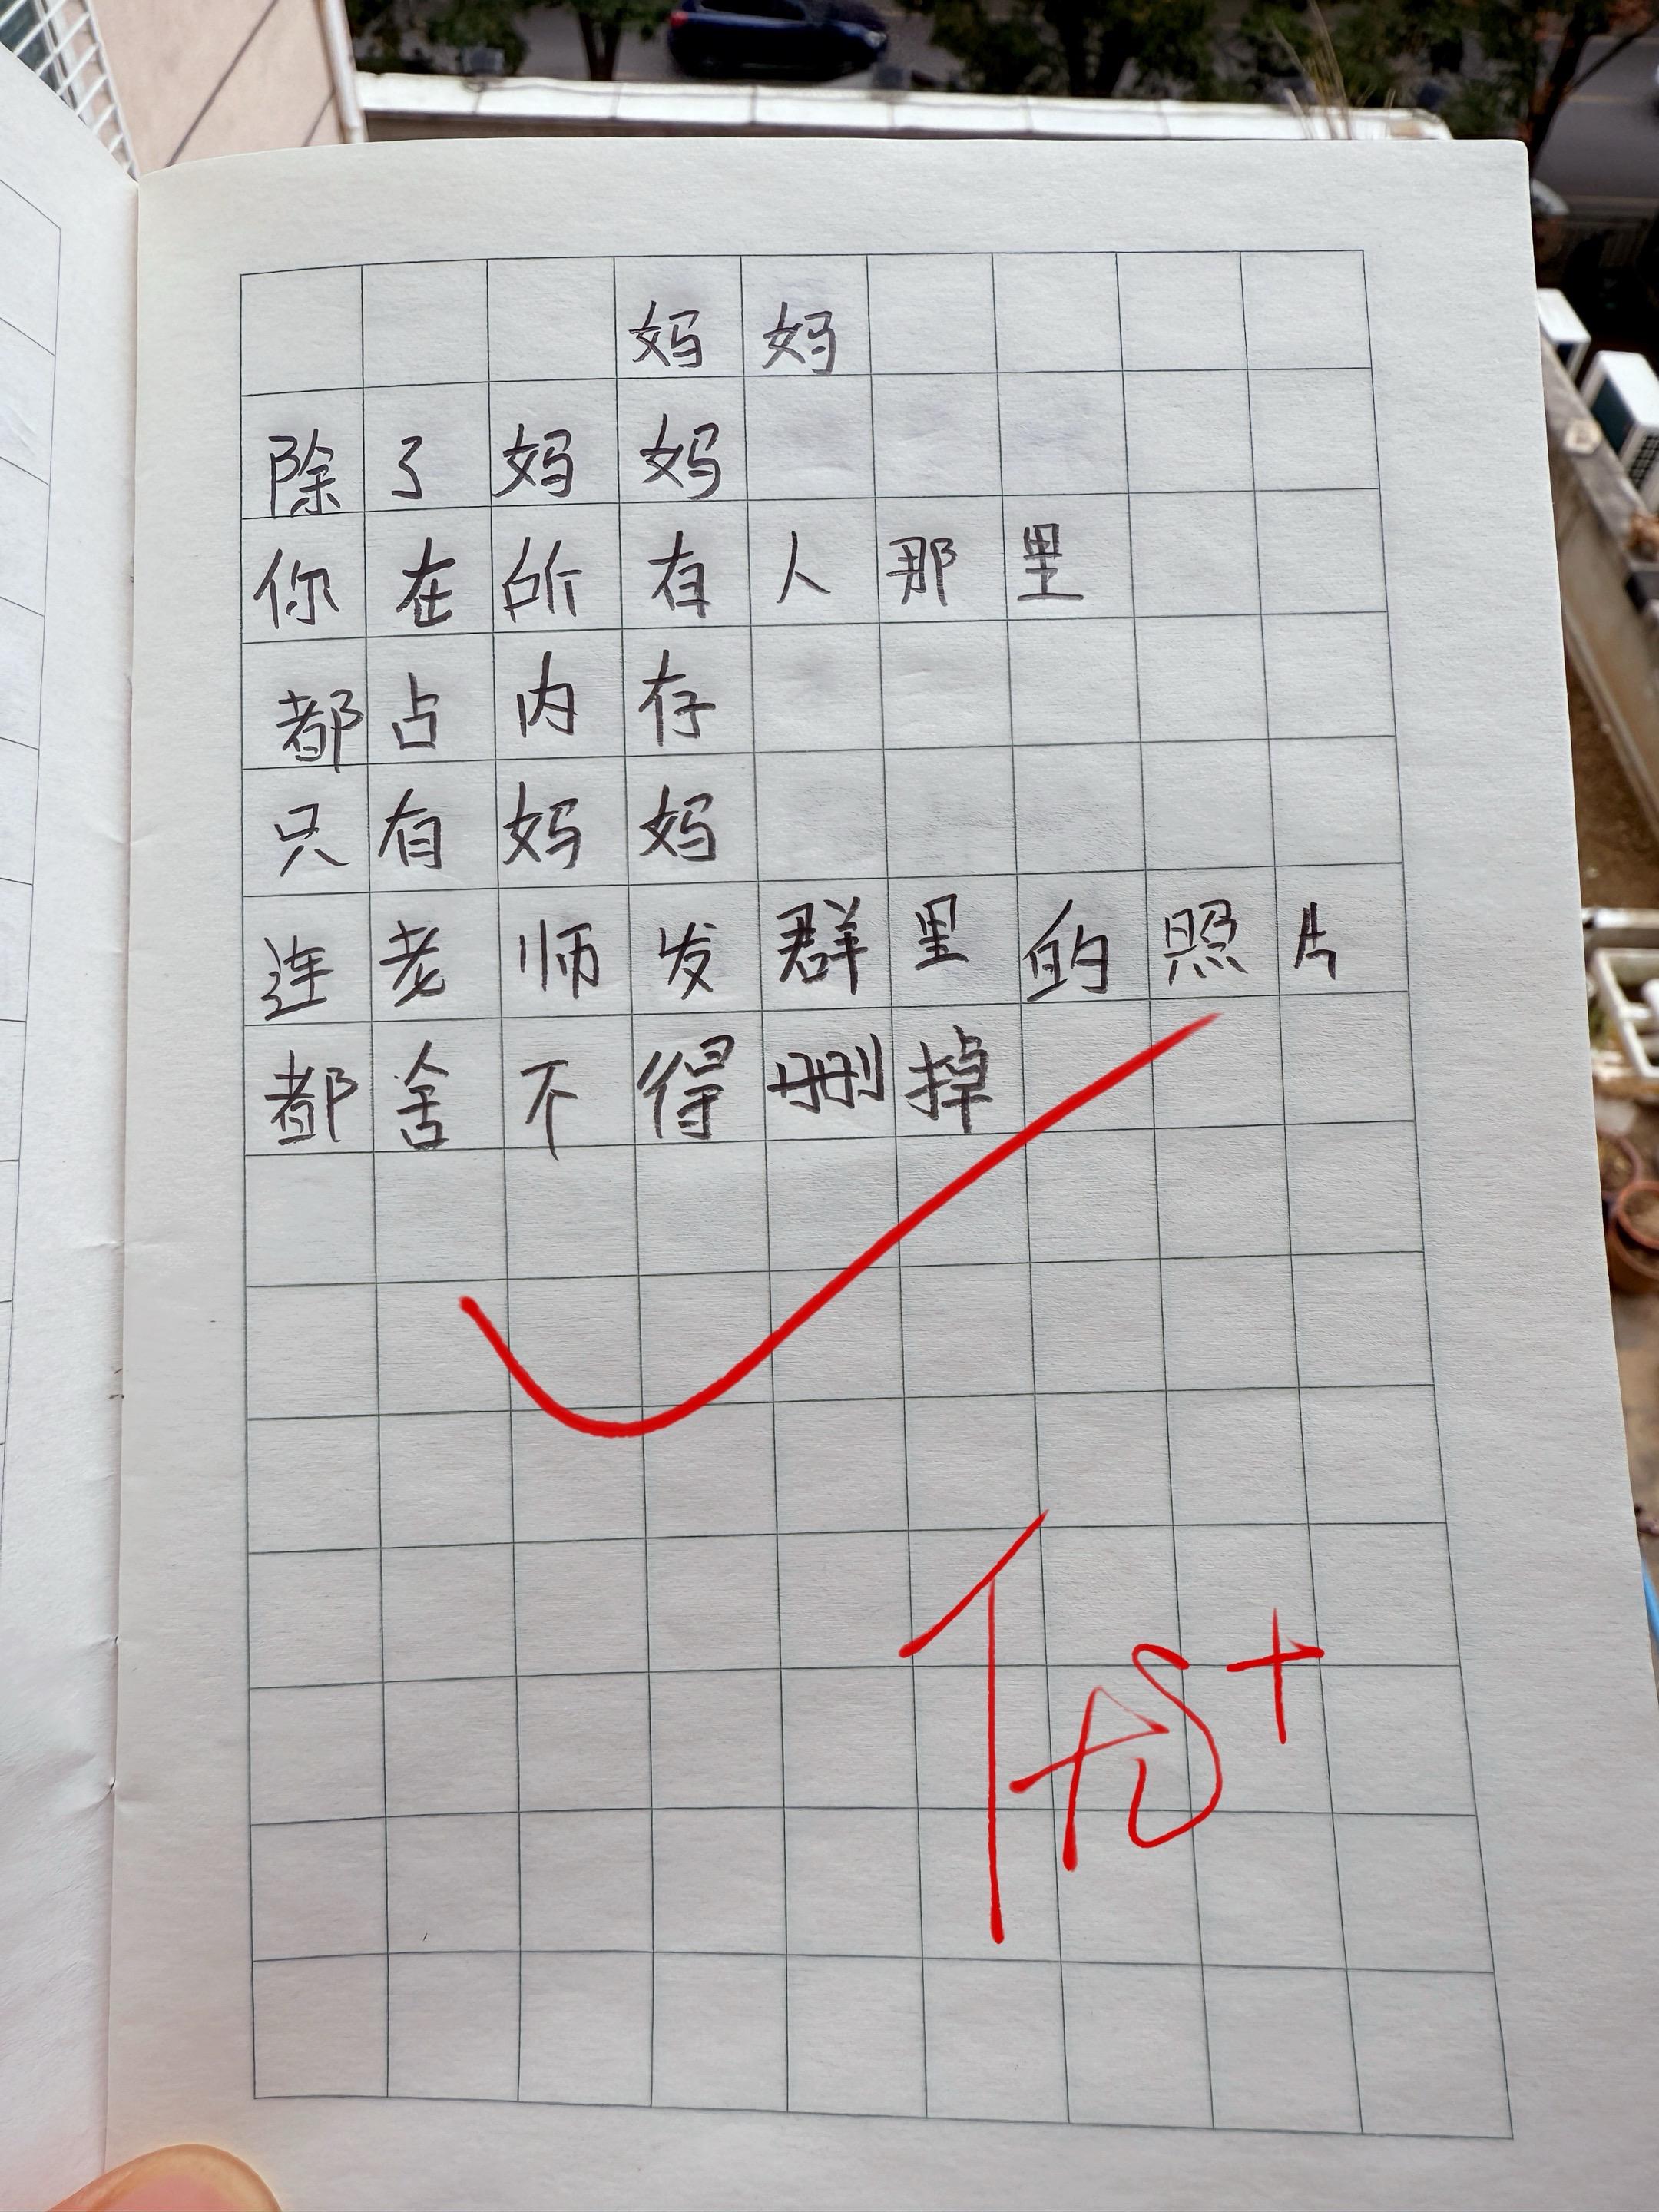 妈妈
除了妈妈
你在所有人那里
都占内存
只有妈妈
连老师发群里的照片
都舍不得删掉
优+